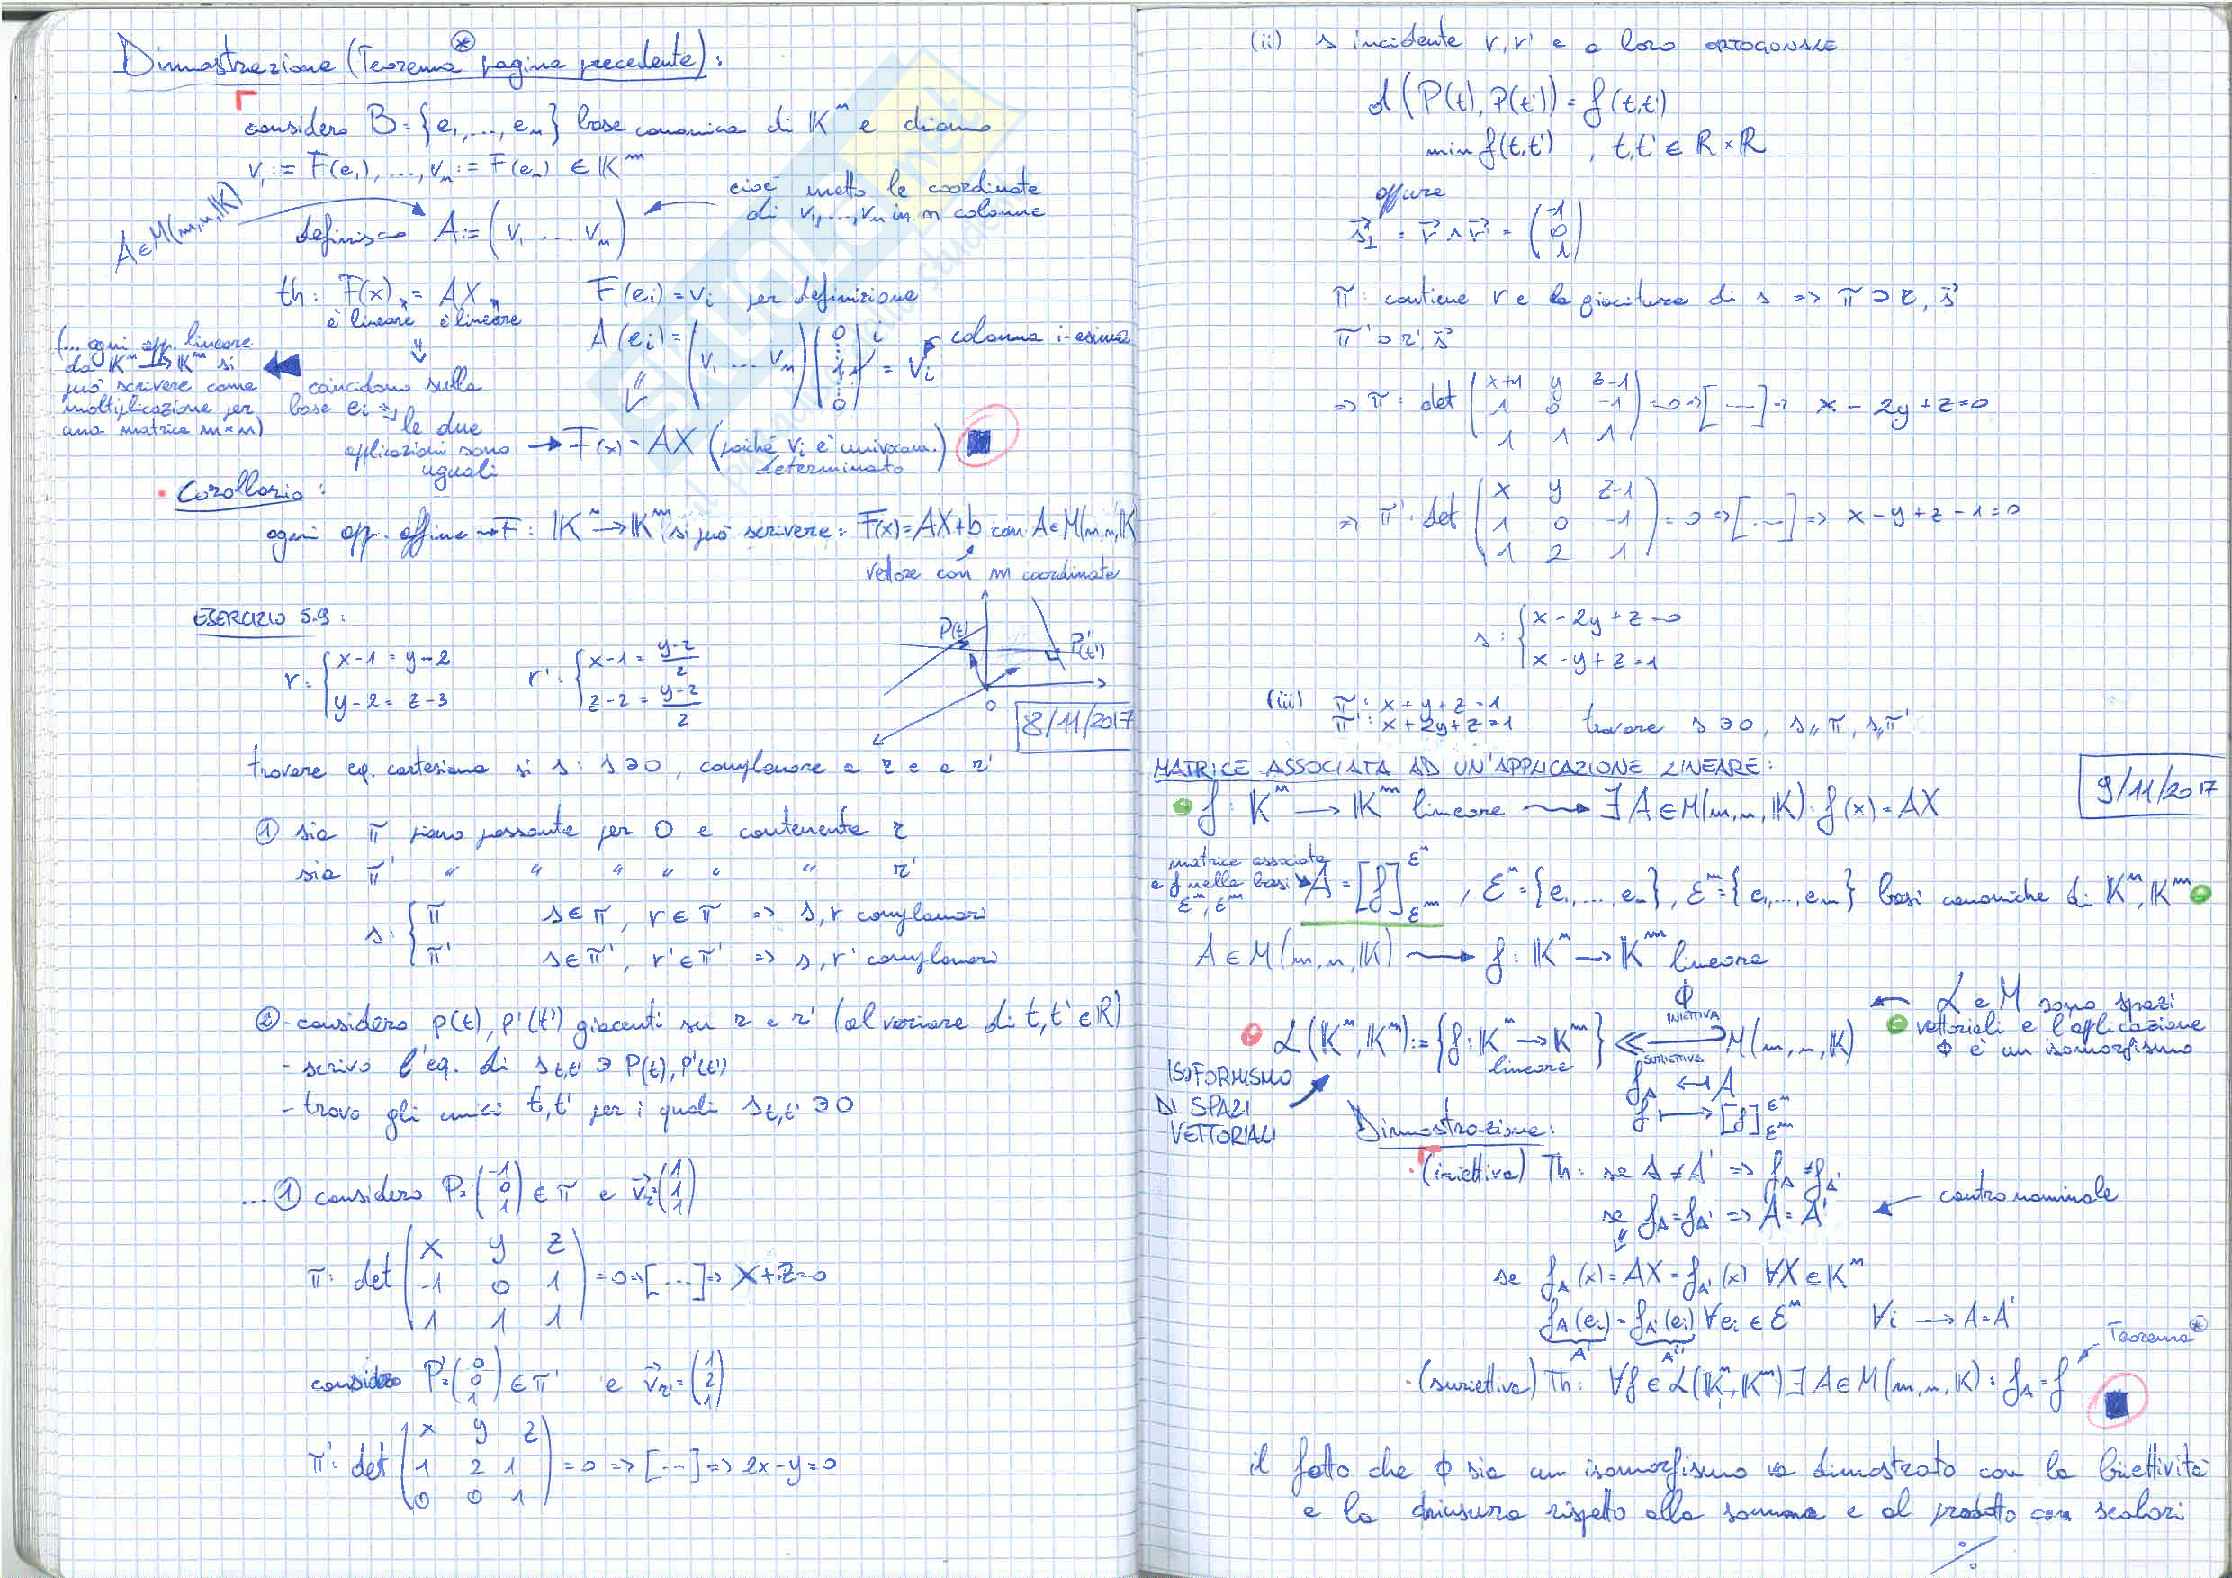 Dimostrazione (Teorema ⊛ pagina precedente):
considero B = {e₁, ..., eₙ} base canonica di 𝕂ⁿ e diciamo
v₁ := F(e₁), ..., vₙ := F(eₙ) ∈ 𝕂ᵐ
A ∈ M(m,n,𝕂)
definisco A := (v₁ ... vₙ)
cioè metto le coordinate
di v₁, ..., vₙ in n colonne
th: F(x) = AX
è lineare è lineare
F(eᵢ) = vᵢ per definizione
A(eᵢ) = (v₁ ... vₙ) (0 ⋮ 1 ⋮ 0) i = vᵢ colonna i-esima
(... ogni app. lineare
da 𝕂ⁿ → 𝕂ᵐ si
può scrivere come
moltiplicazione per
una matrice m×n)
⇓
coincidono sulla
base eᵢ ⇒ le due
applicazioni sono
uguali
→ F(x) = AX (poiché vᵢ è univocam.
determinato)
• Corollario:
ogni app. affine → F: 𝕂ⁿ → 𝕂ᵐ si può scrivere: F(x) = AX + b con A ∈ M(m,n,𝕂
vettore con m coordinate
ESERCIZIO 5.9:
r: { x-1 = y-2
y-2 = z-3
r': { x-1 = (y-2)/2
z-2 = (y-2)/2
P(t)
P'(t')
0
8/11/2017
trovare eq. cartesiana di s: s∋0, complanare a r e a r'
① sia π piano passante per 0 e contenente r
sia π' " " " " " " r'
s: { π s∈π, r∈π ⇒ s, r complanari
π' s∈π', r'∈π' ⇒ s, r' complanari
② - considero P(t), P'(t') giacenti su r e r' (al variare di t, t' ∈ R)
- scrivo l'eq. di s_{t,t'} ∋ P(t), P'(t')
- trovo gli unici t, t' per i quali s_{t,t'} ∋ 0
... ① considero P = (-1 0 1) ∈ π e v⃗r = (1 1 1)
π: det ( x y z
-1 0 1
1 1 1 ) = 0 ⇒ [...] ⇒ x+z=0
considero P' = (0 0 1) ∈ π' e v⃗r' = (1 2 1)
π': det ( x y z
1 2 1
0 0 1 ) = 0 ⇒ [...] ⇒ 2x-y=0
(ii) s incidente r, r' e a loro ORTOGONALE
d(P(t), P(t')) = f(t,t')
min f(t,t') , t,t' ∈ R×R
oppure
s⃗⊥ = r⃗ ∧ r⃗' = (-1 0 1)
π: contiene r e la giacitura di s ⇒ π ⊃ r, s⃗
π' ⊃ r', s⃗
⇒ π: det ( x+1 y z-1
1 0 -1
1 1 1 ) = 0 ⇒ [...] ⇒ x-2y+z=0
⇒ π': det ( x y z-1
1 0 -1
1 2 1 ) = 0 ⇒ [...] ⇒ x-y+z-1=0
s: { x-2y+z=0
x-y+z=1
(iii) π: x+y+z=1
π': x+2y+z=1 trovare s∋0, s//π, s//π'
MATRICE ASSOCIATA AD UN'APPLICAZIONE LINEARE:
9/11/2017
f: 𝕂ⁿ → 𝕂ᵐ lineare → ∃ A ∈ M(m,n,𝕂): f(x) = AX
matrice associata
a f nelle basi
εⁿ, εᵐ
A = [f]^{εⁿ}_{εᵐ}, εⁿ = {e₁, ..., eₙ}, εᵐ = {e₁, ..., eₘ} basi canoniche di 𝕂ⁿ, 𝕂ᵐ
A ∈ M(m,n,𝕂) → f: 𝕂ⁿ → 𝕂ᵐ lineare
ℒ(𝕂ⁿ, 𝕂ᵐ) := {f: 𝕂ⁿ → 𝕂ᵐ lineare} Φ INIETTIVA SURIETTIVA M(m,n,𝕂)
ℒ e M sono spazi
vettoriali e l'applicazione
Φ è un isomorfismo
ISOFORMISMO
DI SPAZI
VETTORIALI
f_A ↤ A
f ↦ [f]^{εⁿ}_{εᵐ}
Dimostrazione:
• (iniettiva) Th: se A ≠ A' ⇒ f_A ≠ f_A'
se f_A = f_A' ⇒ A = A'
contronominale
se f_A(x) = AX = f_A'(x) ∀X ∈ 𝕂ⁿ
f_A(eᵢ) = f_A'(eᵢ) ∀eᵢ ∈ εⁿ ∀i → A = A'
Aⁱ A'ⁱ
Teorema ⊛
• (suriettiva) Th: ∀f ∈ ℒ(𝕂ⁿ, 𝕂ᵐ) ∃ A ∈ M(m,n,𝕂): f_A = f
il fatto che Φ sia un isomorfismo va dimostrato con la biettività
e la chiusura rispetto alla somma e al prodotto con scalari